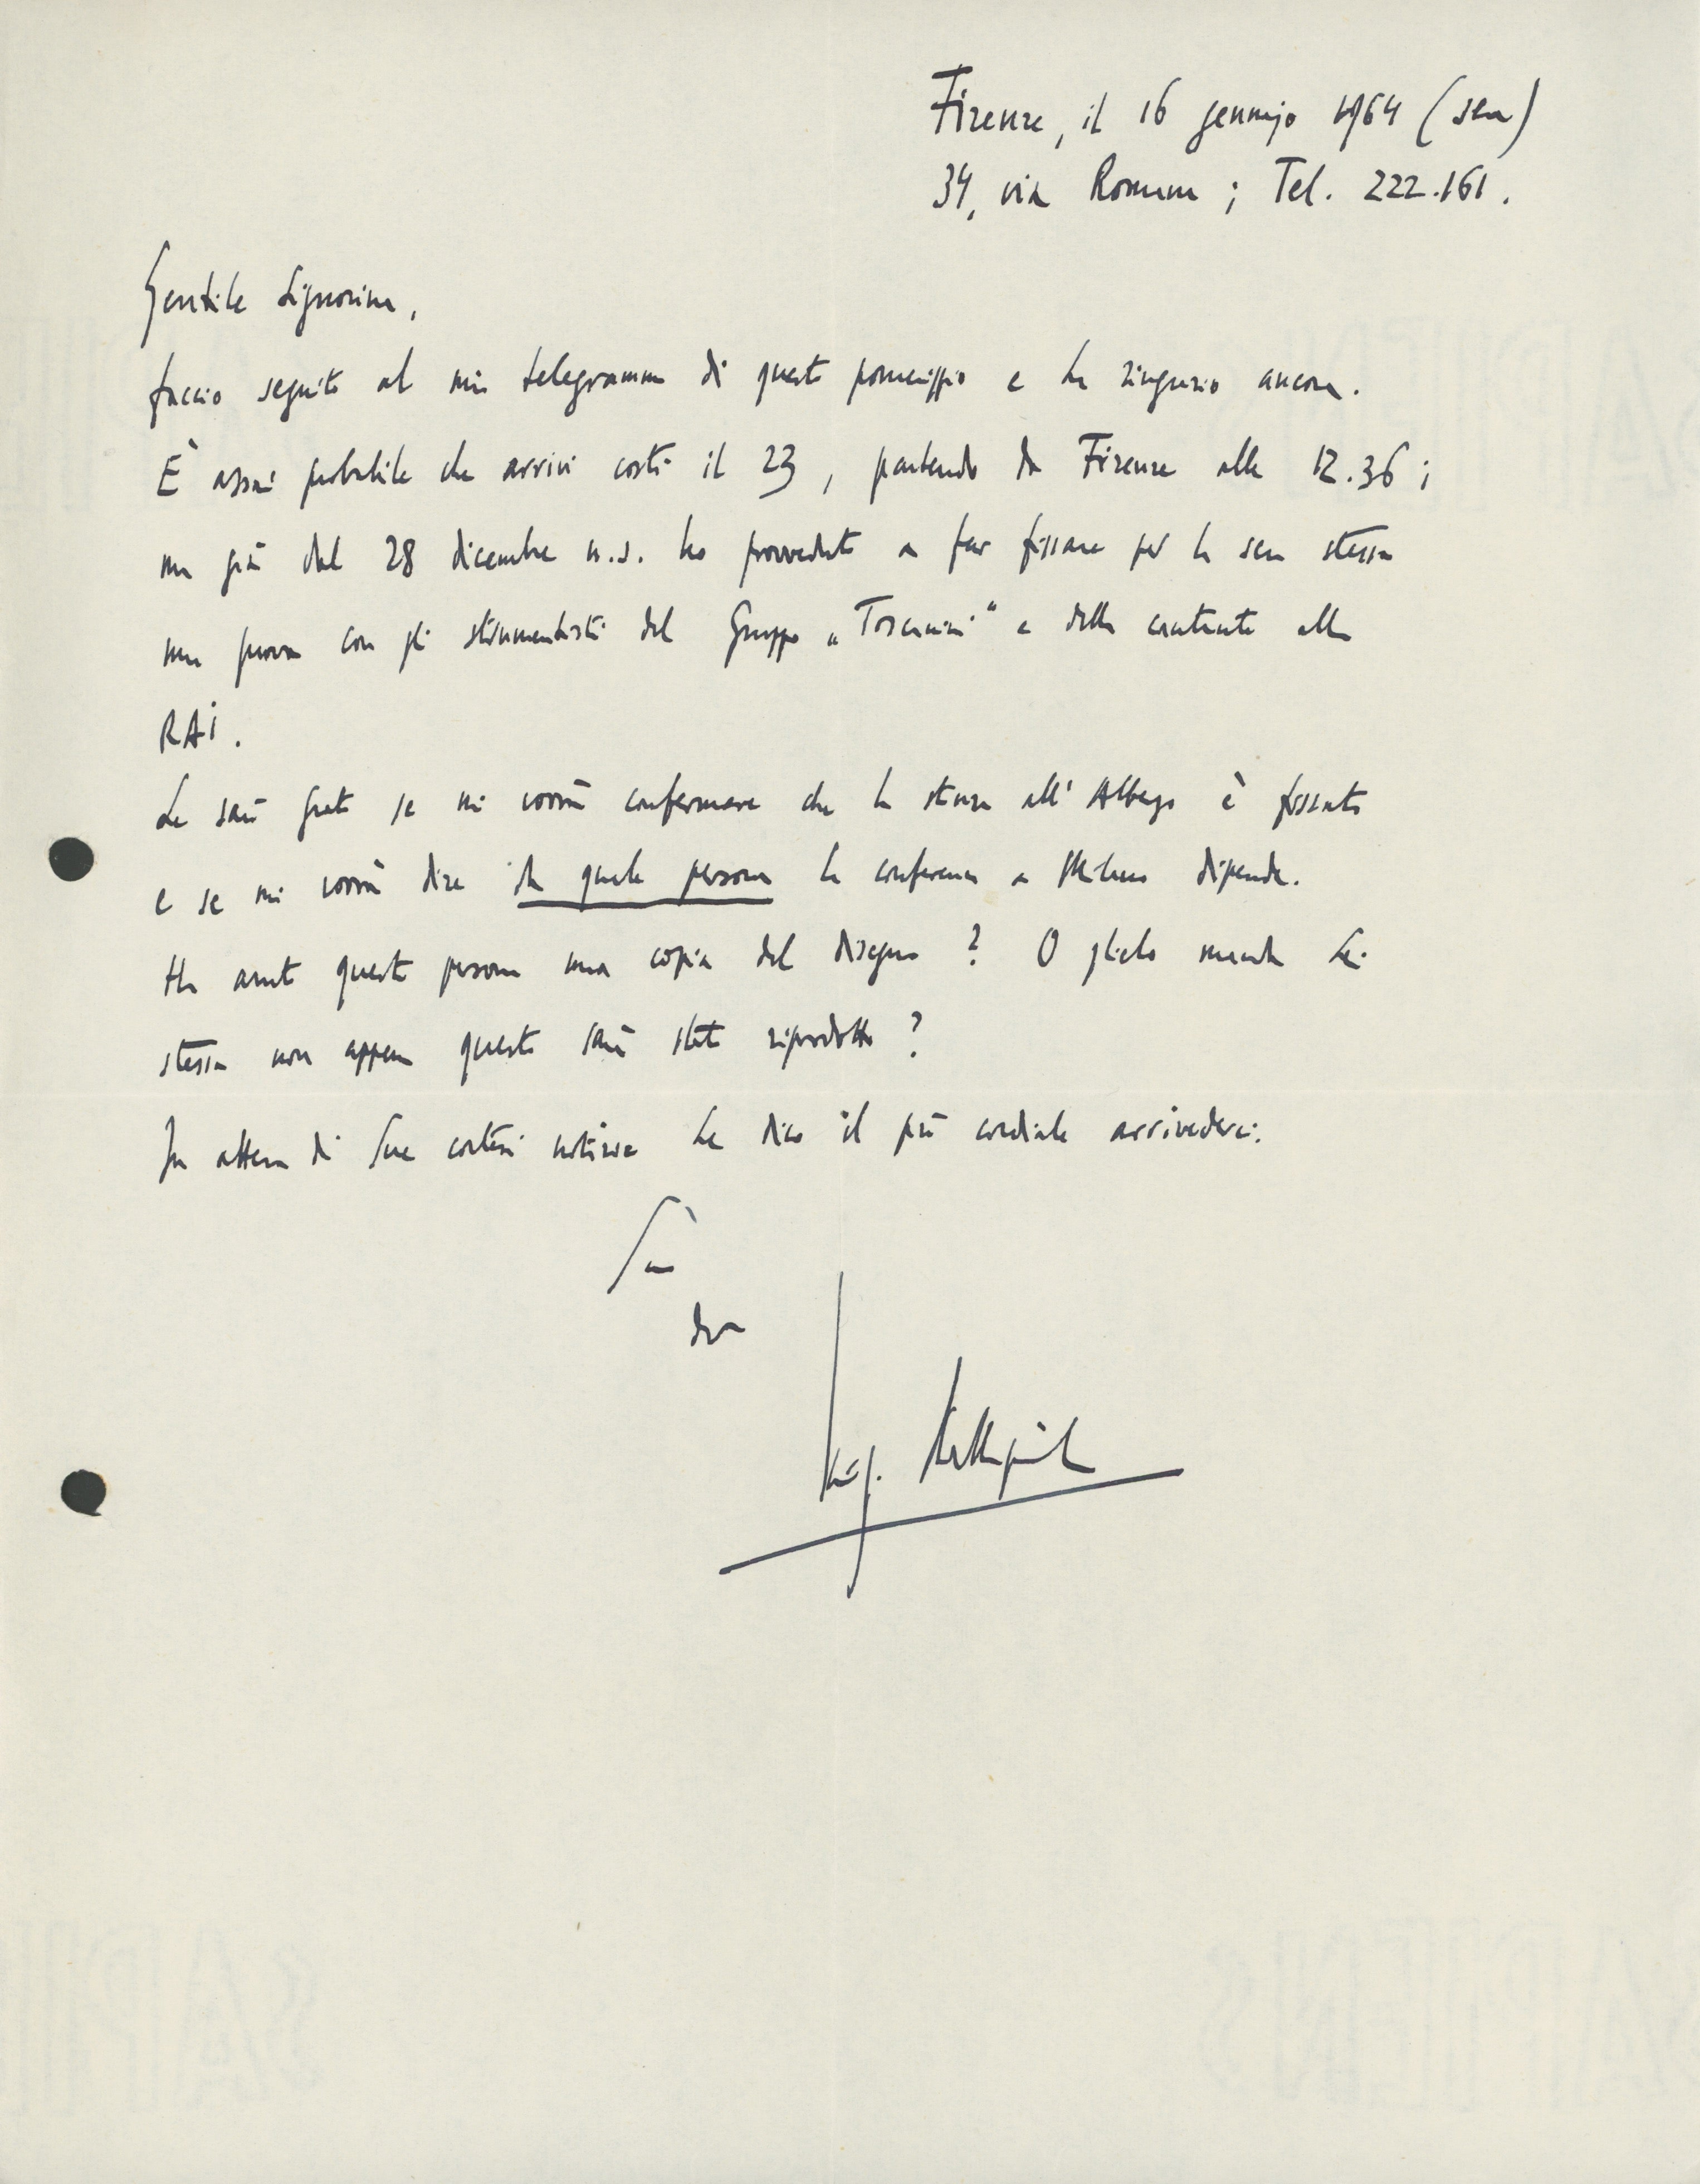 Firenze, il 16 gennajo 1964 (sera)
34, via Romana ; Tel. 222.161.
Gentile Signorina,
faccio seguito al mio telegramma di questo pomeriggio e La ringrazio ancora.
È assai probabile che arrivi costì il 23, partendo da Firenze alle 12.36 ;
ma già dal 28 dicembre u.s. ho provveduto a far fissare per la sera stessa
una prova con gli strumentisti del Gruppo „Toscanini“ e della cantante alla
RAI.
Le sarò grato se mi vorrà confermare che la stanza all' Albergo è fissata
e se mi vorrà dire da quale persona la conferenza a Milano dipende.
Ha avuto questa persona una copia del disegno ? O glielo manda Lei
stessa non appena questo sarà stato riprodotto ?
In attesa di Sue cortesi notizie Le dico il più cordiale arrivederci.
Suo
dev
Luigi Dallapiccola
SAPIENS